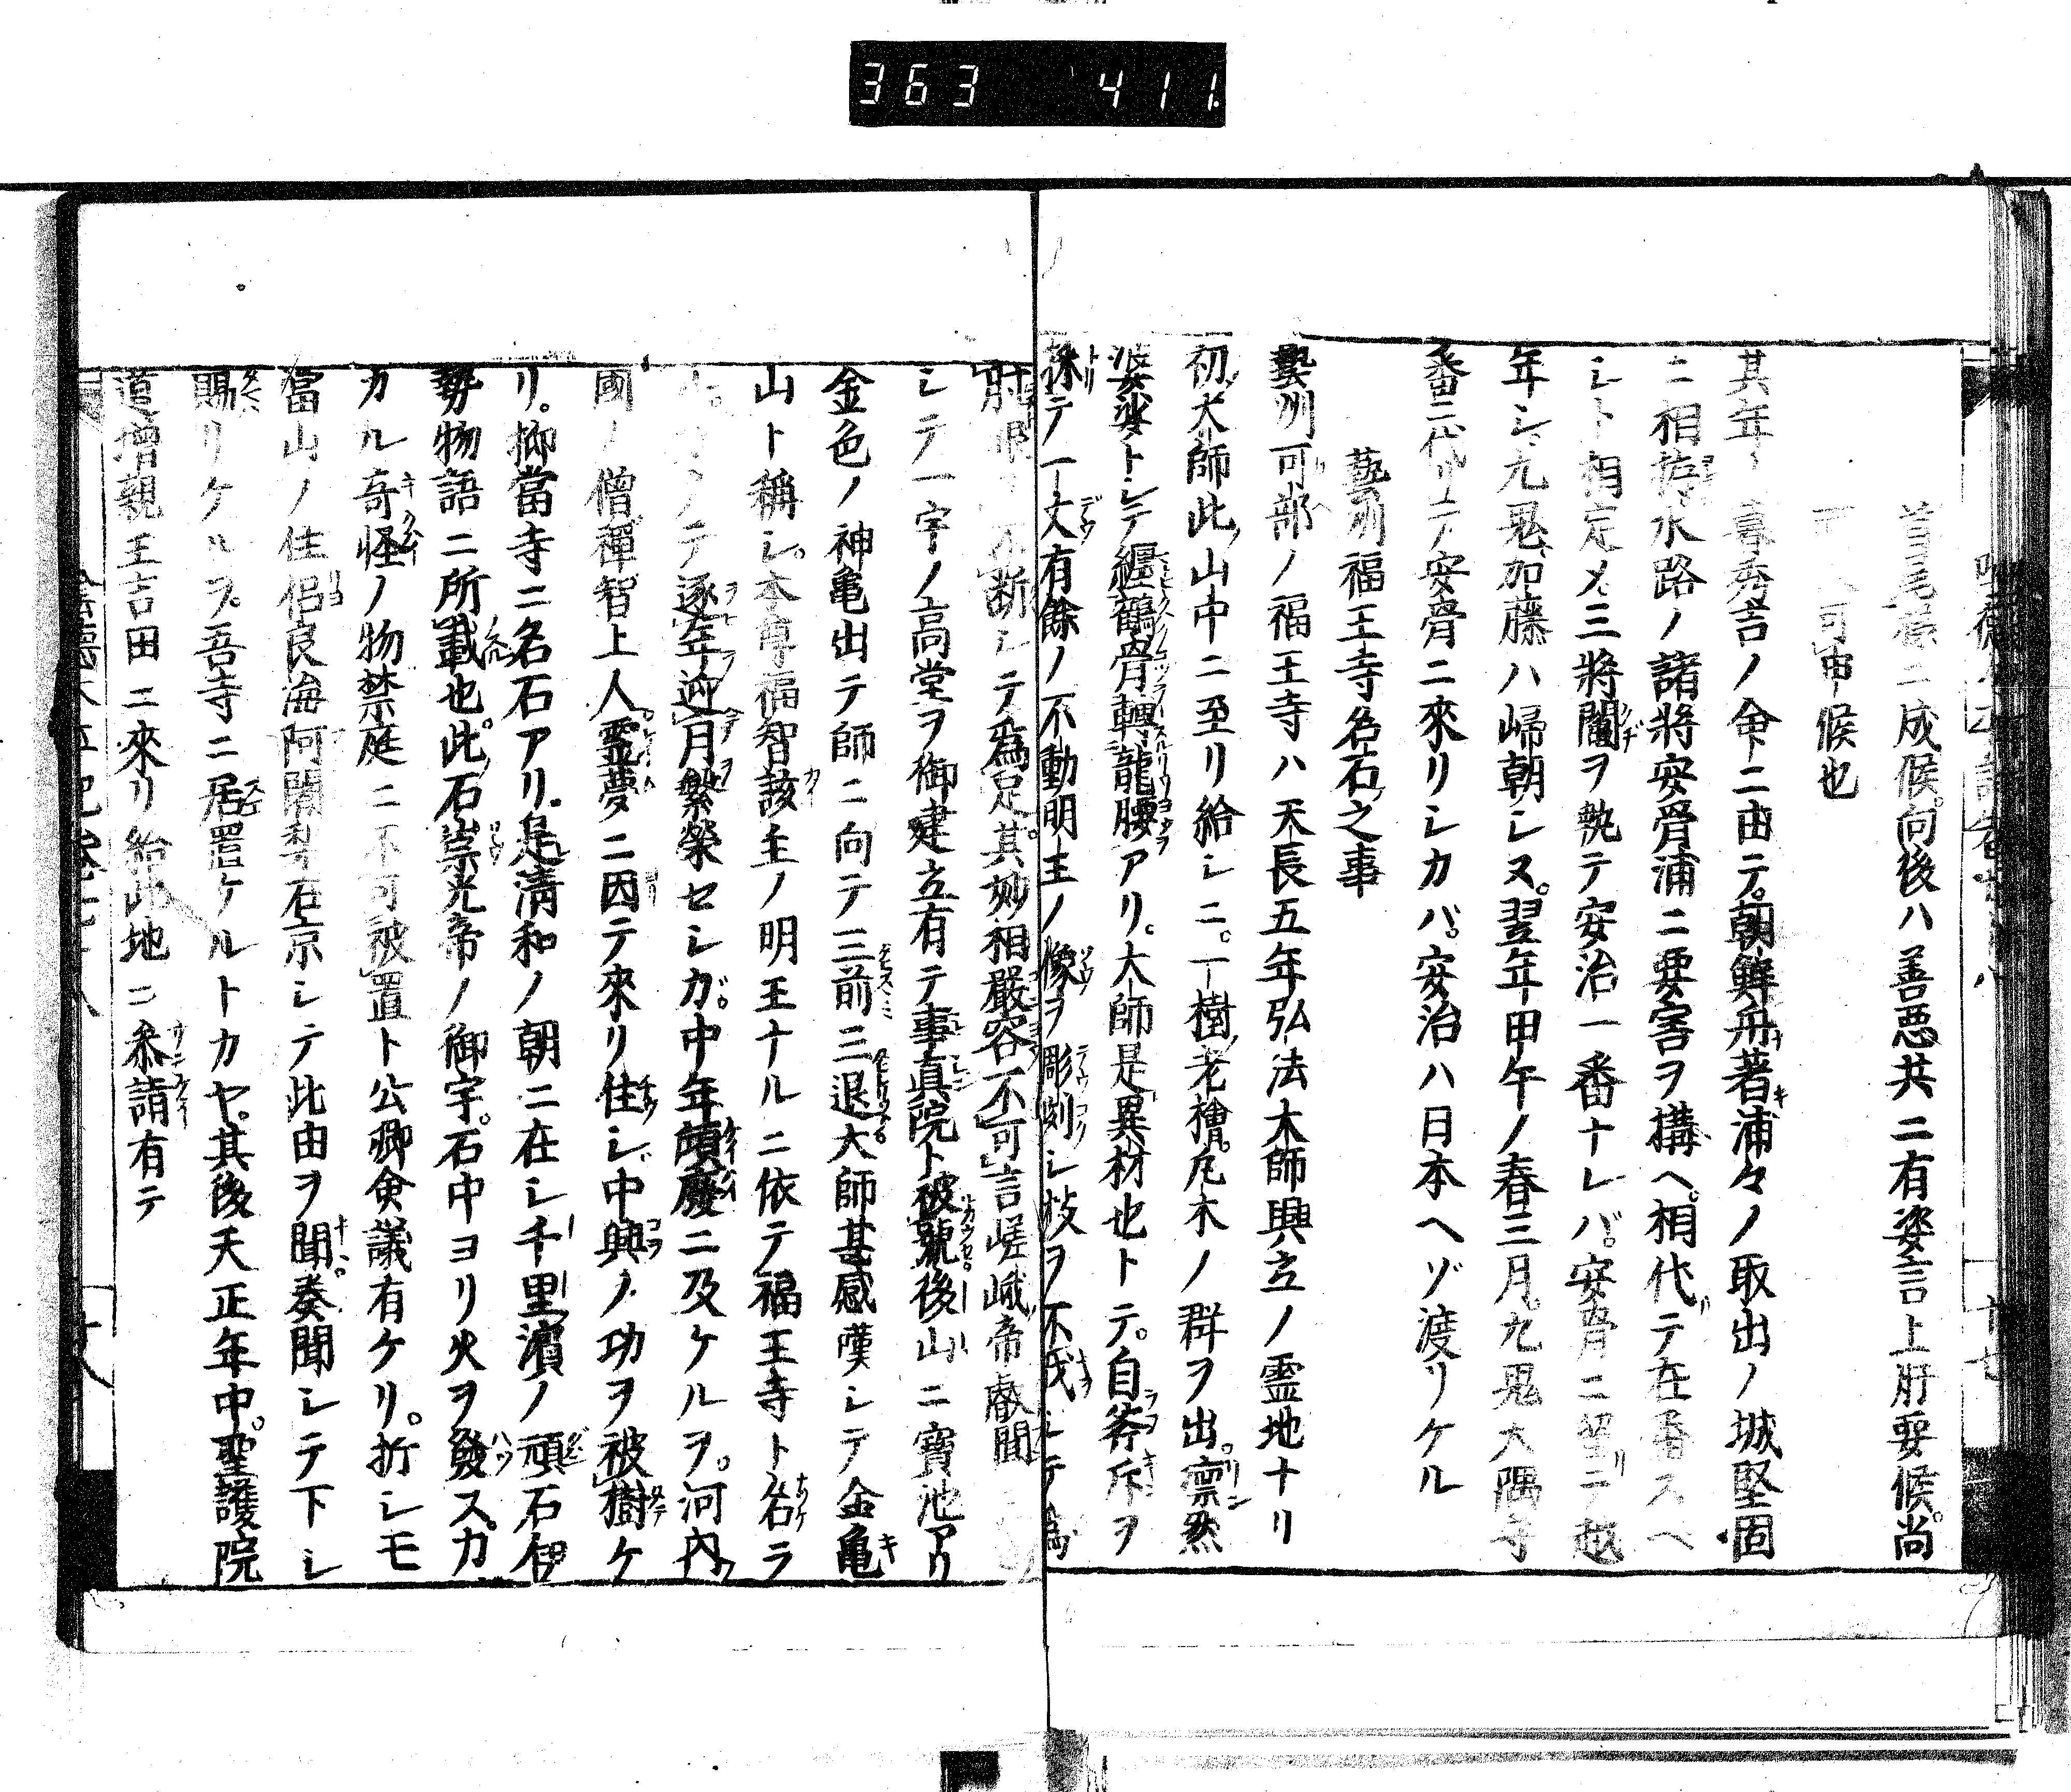 363 411
首尾兼ニ成候。向後ハ善悪共ニ有姿言上肝要候。尚
可申候也
其年ノ暮秀吉ノ命ニ由テ。朝鮮舟著浦々ノ取出ノ城堅固
ニ相抱ヘ水路ノ諸將安骨浦ニ要害ヲ構ヘ。相代リテ在番スヘ
シト相定メ三將鬮ヲ執テ安治一番ナレバ。安骨ニ留リテ越
年シ。九鬼加藤ハ歸朝シヌ。翌年甲午ノ春三月。九鬼大隅守
番ニ代リニテ安骨ニ來リシカバ。安治ハ日本ヘゾ渡リケル
藝州福王寺名石之事
藝州可部ノ福王寺ハ天長五年弘法大師興立ノ霊地ナリ
初大師此山中ニ至リ給シニ。一樹ノ老檜。凡木ノ群ヲ出。凛然
婆娑トシテ纒鶴骨轉龍腰アリ。大師是異材也トテ。自斧斤ヲ
採テ一丈有餘ノ不動明王ノ像ヲ彫刻シ枝ヲ不伐シテ為
肘根ヲ不断シテ為足。其妙相嚴容不可言嵯峨帝叡聞
シテ一宇ノ高堂ヲ御建立有テ事真院ト被號後山ニ寶池アリ
金色ノ神亀出テ師ニ向テ三前三退大師甚感嘆シテ金亀
山ト稱シ。本尊福智該主ノ明王ナルニ依テ福王寺ト名ラ
テ逐年迎月繁榮セシガ。中年頽廢ニ及ケルヲ。河内
國ノ僧禪智上人。霊夢ニ因テ來リ住シ中興ノ功ヲ被樹ケ
リ。抑當寺ニ名石アリ。是清和ノ朝ニ在シ千里濱ノ頑石伊
勢物語ニ所載也。此石崇光帝ノ御宇。石中ヨリ火ヲ發ス。カ
カル奇怪ノ物禁庭ニ不可被置ト公卿僉議有ケリ。折シモ
當山ノ住侶良海阿闍梨在京シテ此由ヲ聞。奏聞シテ下シ
賜リケルヲ。吾寺ニ居置ケルトカヤ。其後天正年中。聖護院
道増親王吉田ニ來リ給此地ニ叅請有テ